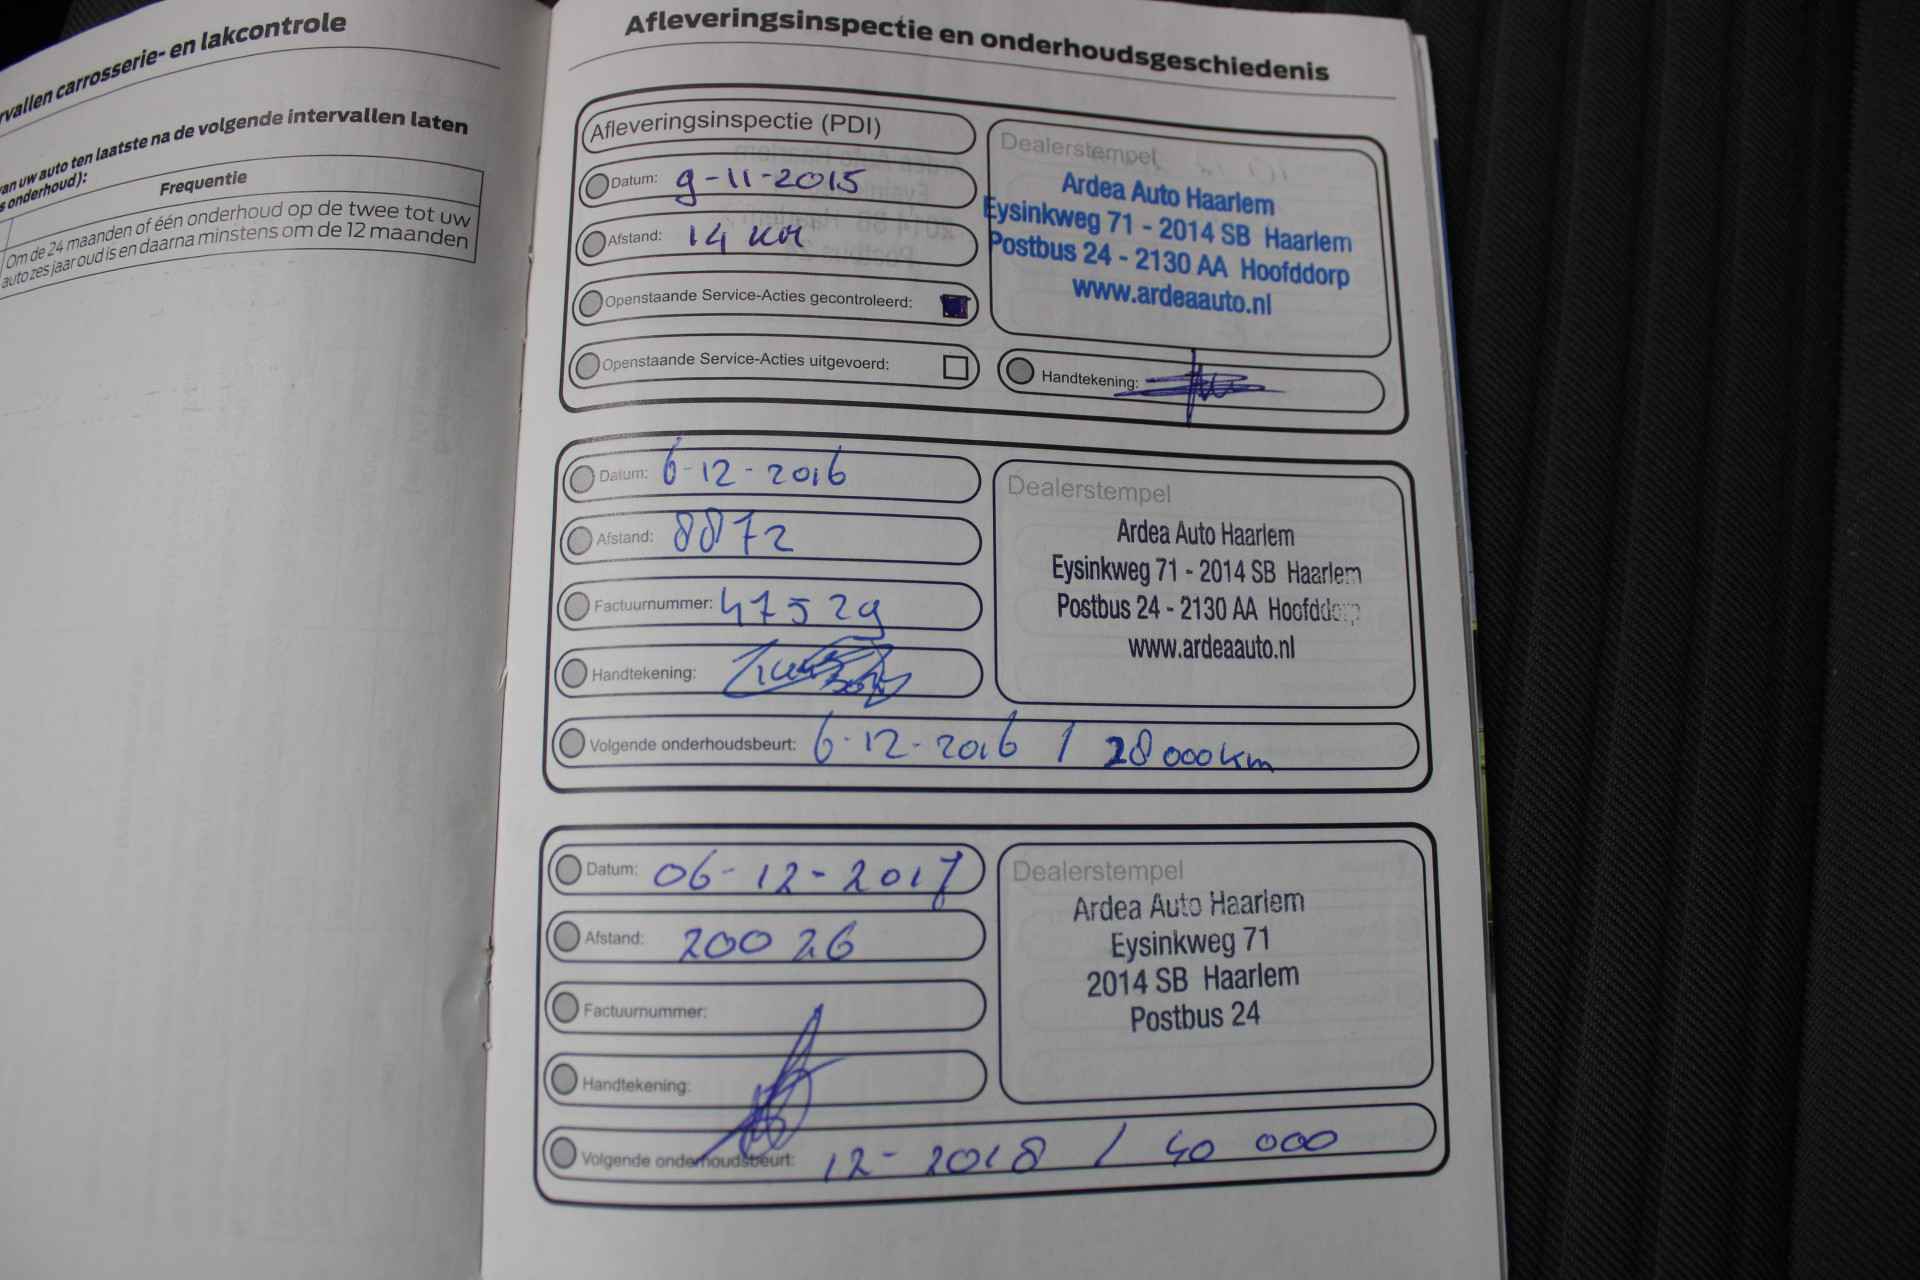 rvallen carrosserie- en lakcontrole
van uw auto ten laatste na de volgende intervallen laten
s onderhoud):
Frequentie
Om de 24 maanden of één onderhoud op de twee tot uw
auto zes jaar oud is en daarna minstens om de 12 maanden
Afleveringsinspectie en onderhoudsgeschiedenis
Afleveringsinspectie (PDI)
Datum: 9-11-2015
Afstand: 14 KM
Openstaande Service-Acties gecontroleerd:
Openstaande Service-Acties uitgevoerd:
Dealerstempel
Ardea Auto Haarlem
Eysinkweg 71 - 2014 SB Haarlem
Postbus 24 - 2130 AA Hoofddorp
www.ardeaauto.nl
Handtekening:
Datum: 6-12-2016
Afstand: 8872
Factuurnummer: 47529
Handtekening:
Dealerstempel
Ardea Auto Haarlem
Eysinkweg 71 - 2014 SB Haarlem
Postbus 24 - 2130 AA Hoofddorp
www.ardeaauto.nl
Volgende onderhoudsbeurt: 6-12-2016 / 28 000 km
Datum: 06-12-2017
Afstand: 20026
Factuurnummer:
Handtekening:
Dealerstempel
Ardea Auto Haarlem
Eysinkweg 71
2014 SB Haarlem
Postbus 24
Volgende onderhoudsbeurt: 12-2018 / 40 000